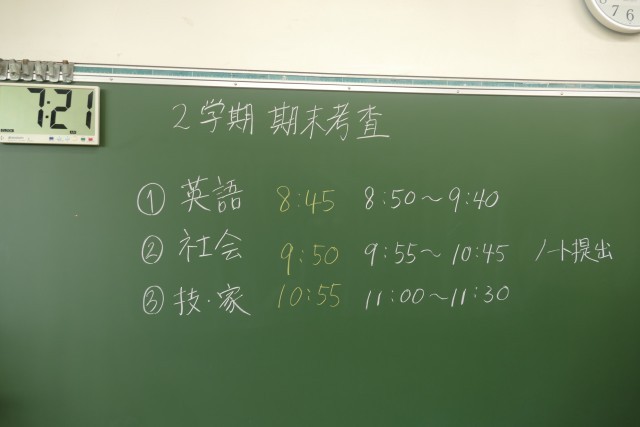 7:21
2学期 期末考査
① 英語 8:45 8:50〜9:40
② 社会 9:50 9:55〜10:45 ノート提出
③ 技・家 10:55 11:00〜11:30